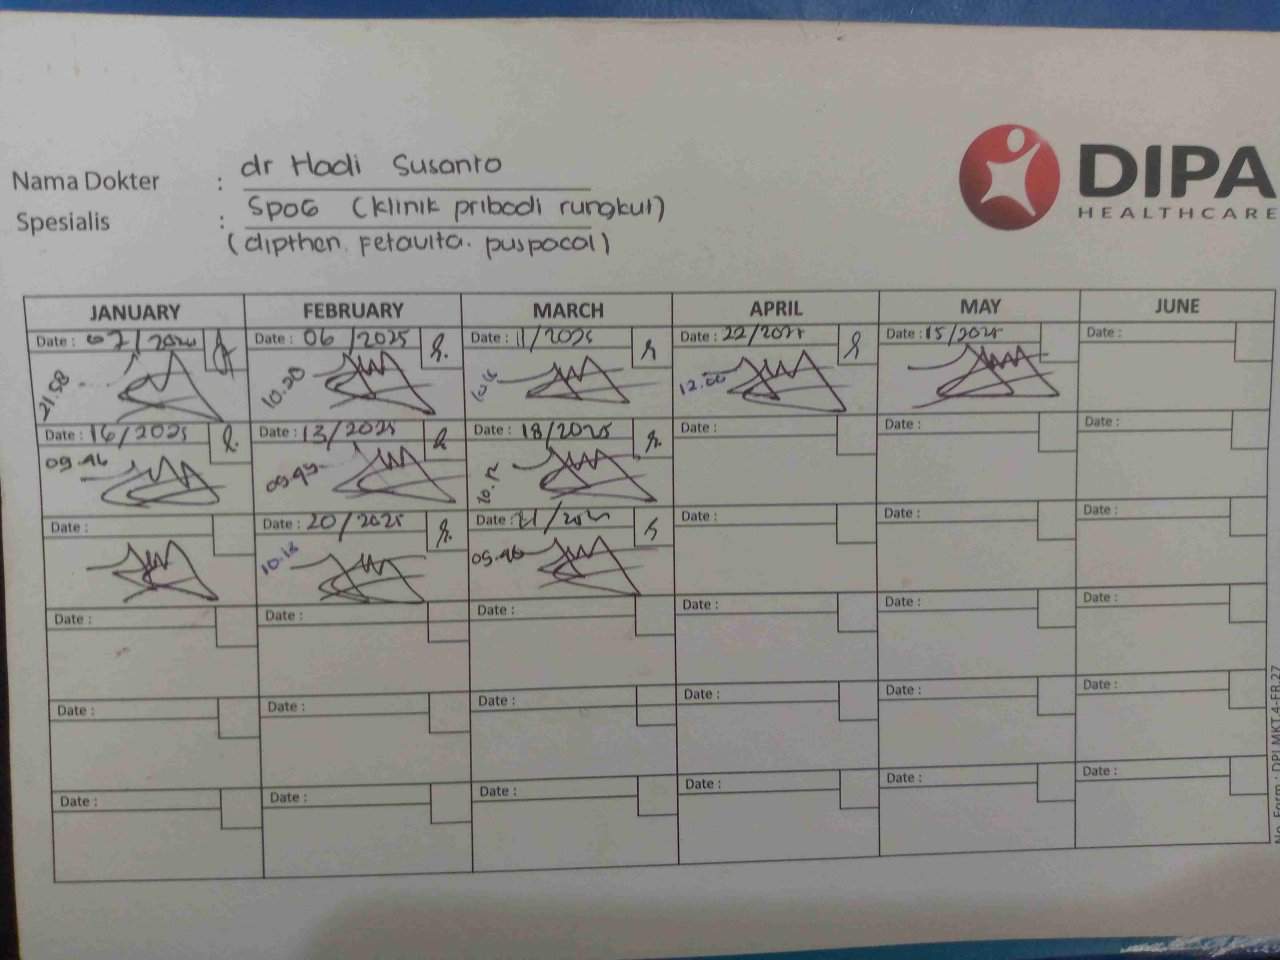 DIPA
HEALTHCARE
Nama Dokter : dr Hadi Susanto
Spesialis : SpOG (klinik pribadi rungkut)
(dipthen. Fetavita. puspacal)
JANUARY FEBRUARY MARCH APRIL MAY JUNE
Date : 07/2024 Date : 06/2025 Date : 11/2025 Date : 22/2025 Date : 15/2025 Date :
21.58 10.20 12.00
Date : 16/2025 Date : 13/2025 Date : 18/2025 Date : Date : Date :
09.46 09.45 10.12
Date : Date : 20/2025 Date : Date : Date : Date :
10.18 09.46
Date : Date : Date : Date : Date : Date :
Date : Date : Date : Date : Date : Date :
Date : Date : Date : Date : Date : Date :
No. Form : DPI.MKT.4-FR.27